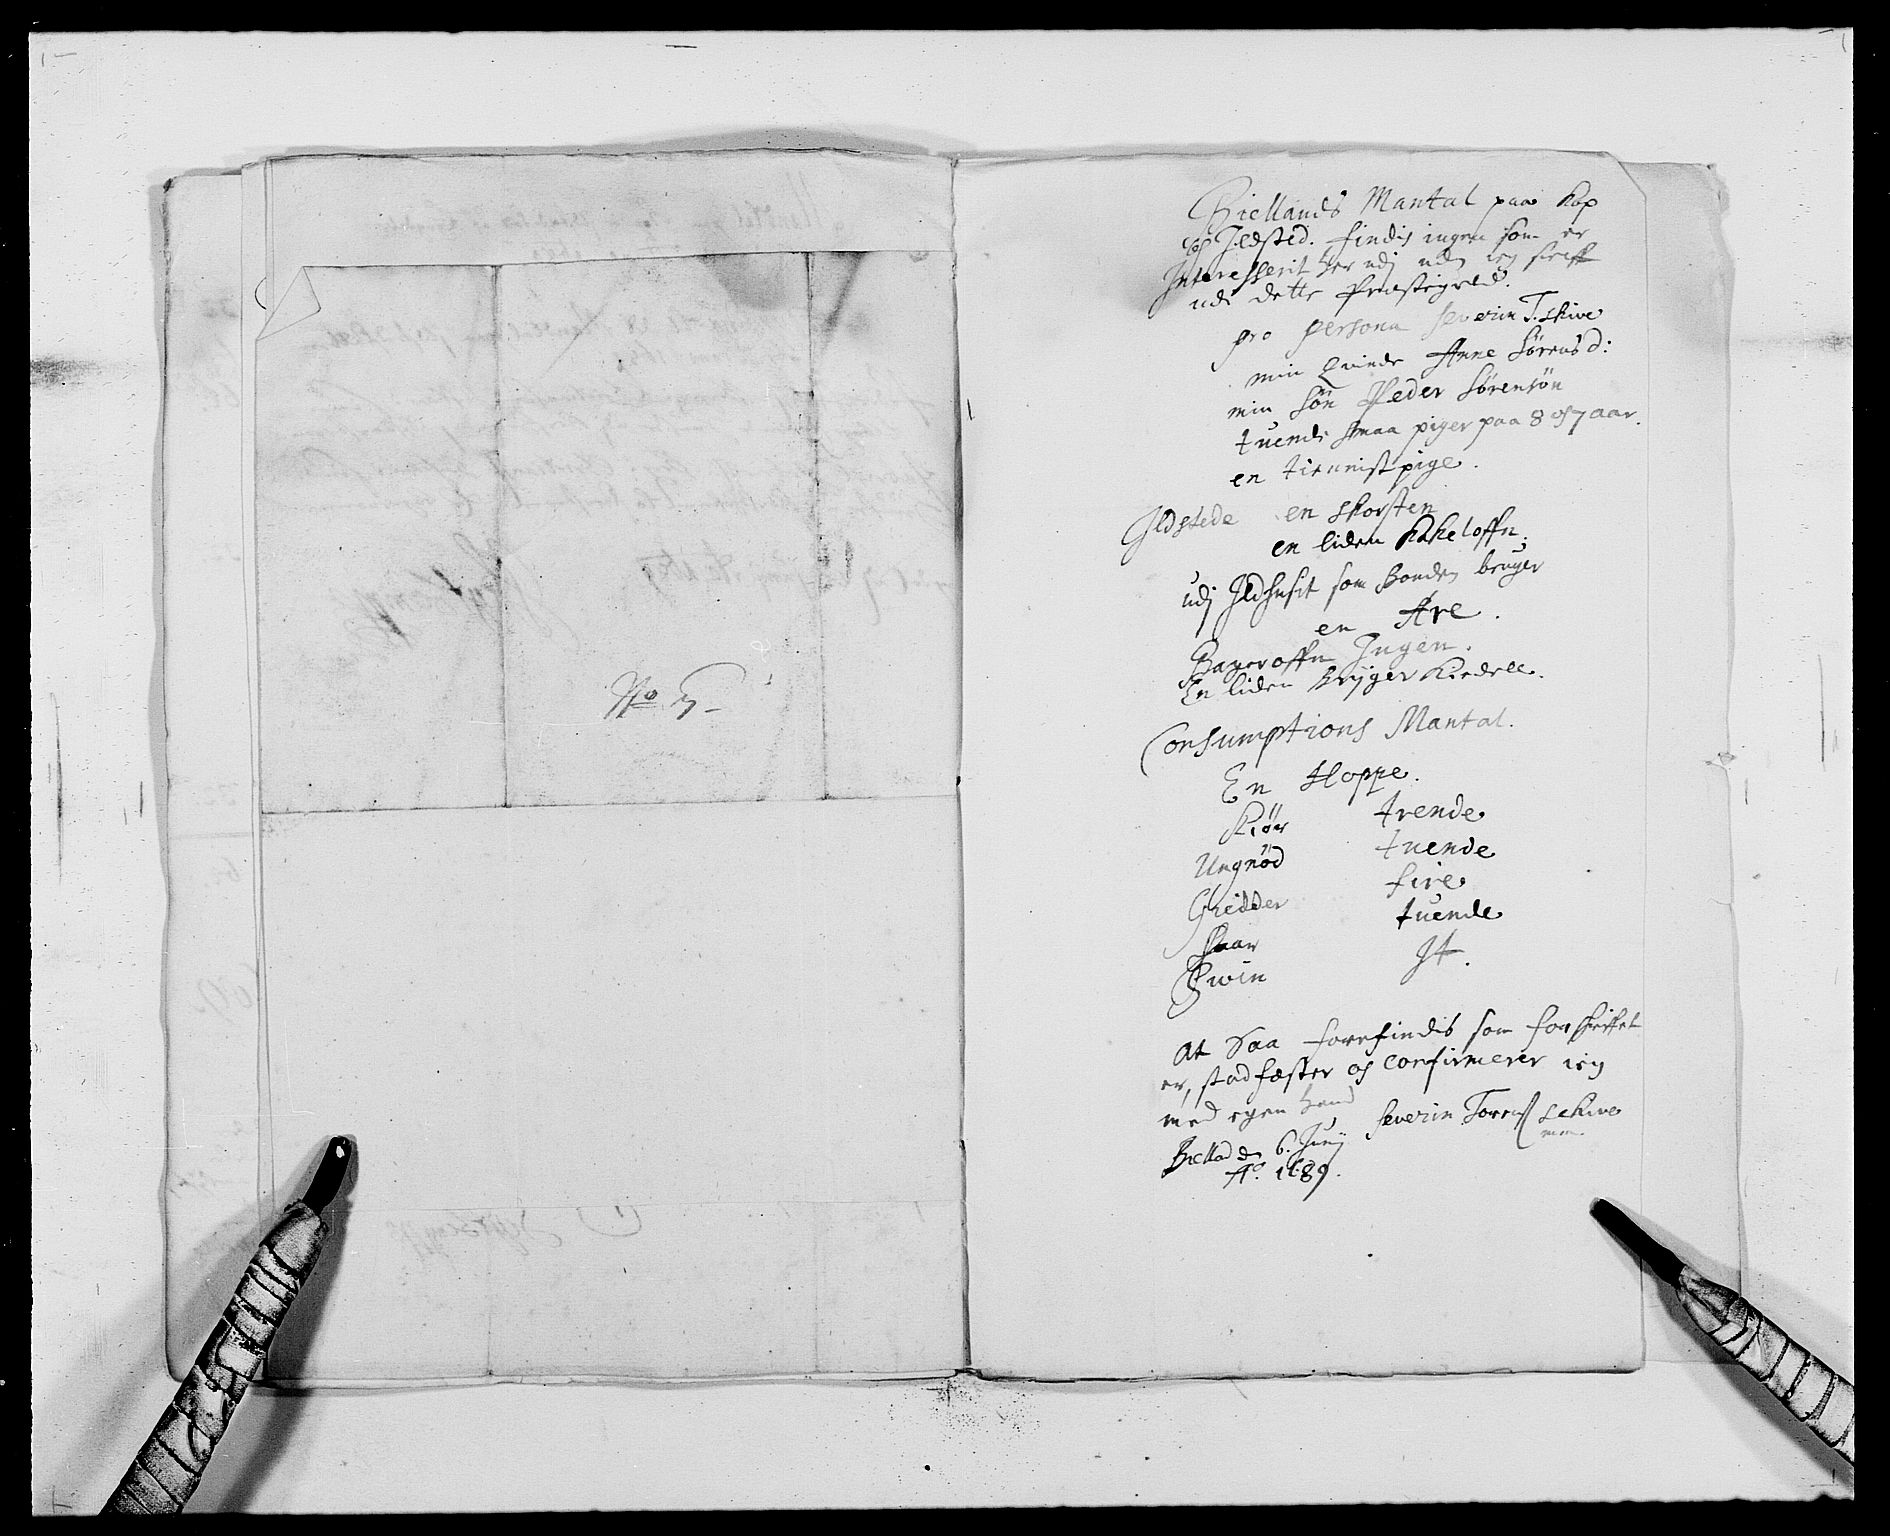 No 7
Biellands Mantal paa Kop
og Ildsted. findis ingen som er
Interesserit her udj uden ieg self
udi dette Præstegield.
pro persona Severin T. Skive
min Qvinde Anne Sørensd:
min Søn Peder Sørensøn
tuende smaa piger paa 8 og 7 aar.
en tienniste pige.
Ildstede en skorsten
en liden Kakeloffn.
udj Ildhusit som Bonden bruger
en Are.
Bageroffn Ingen.
En liden Brÿger Kiedell.
Consumptions Mantal.
En Hoppe.
Kiør trende
Ungnød tuende
Gieder fire
Faar tuende
Swin It.
At Saa forefindis som forskrefvet
er, stadfæster og confirmerer ieg
med egen haand
Severin Skive
Bielland den 6. Junij
Ao. 1689.